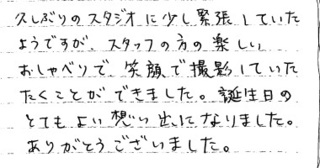 久しぶりのスタジオに少し緊張していた
ようですが、スタッフの方の楽しい
おしゃべりで、笑顔で撮影していた
たくことができました。誕生日の
とてもよい想い出になりました。
ありがとうございました。